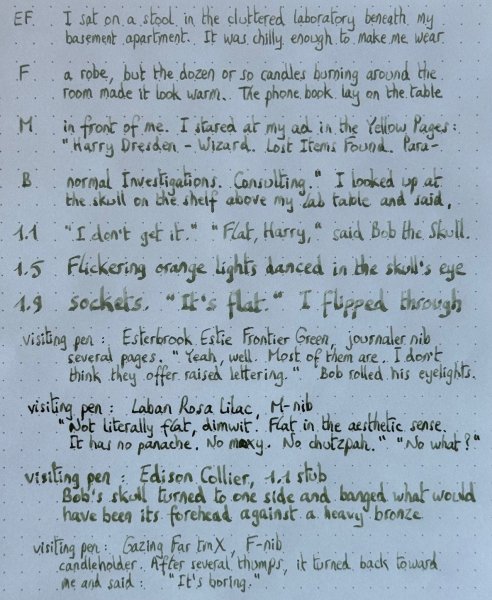 EF I sat on a stool in the cluttered laboratory beneath my
basement apartment. It was chilly enough to make me wear
F a robe, but the dozen or so candles burning around the
room made it look warm. The phone book lay on the table
M in front of me. I stared at my ad in the Yellow Pages:
"Harry Dresden - Wizard. Lost Items Found. Para-
B normal Investigations. Consulting." I looked up at
the skull on the shelf above my lab table and said,
1.1 "I don't get it." "Flat, Harry," said Bob the Skull.
1.5 Flickering orange lights danced in the skull's eye
1.9 sockets. "It's flat." I flipped through
visiting pen: Esterbrook Estie Frontier Green, journaler nib
several pages. "Yeah, well. Most of them are. I don't
think they offer raised lettering." Bob rolled his eyelights.
visiting pen: Laban Rosa Lilac, M-nib
"Not literally flat, dimwit. Flat in the aesthetic sense.
It has no panache. No moxy. No chutzpah." "No what?"
visiting pen: Edison Collier, 1.1 stub
Bob's skull turned to one side and banged what would
have been its forehead against a heavy bronze
visiting pen: Gazing Far tm X, F-nib
candleholder. After several thumps, it turned back toward
me and said: "It's boring."